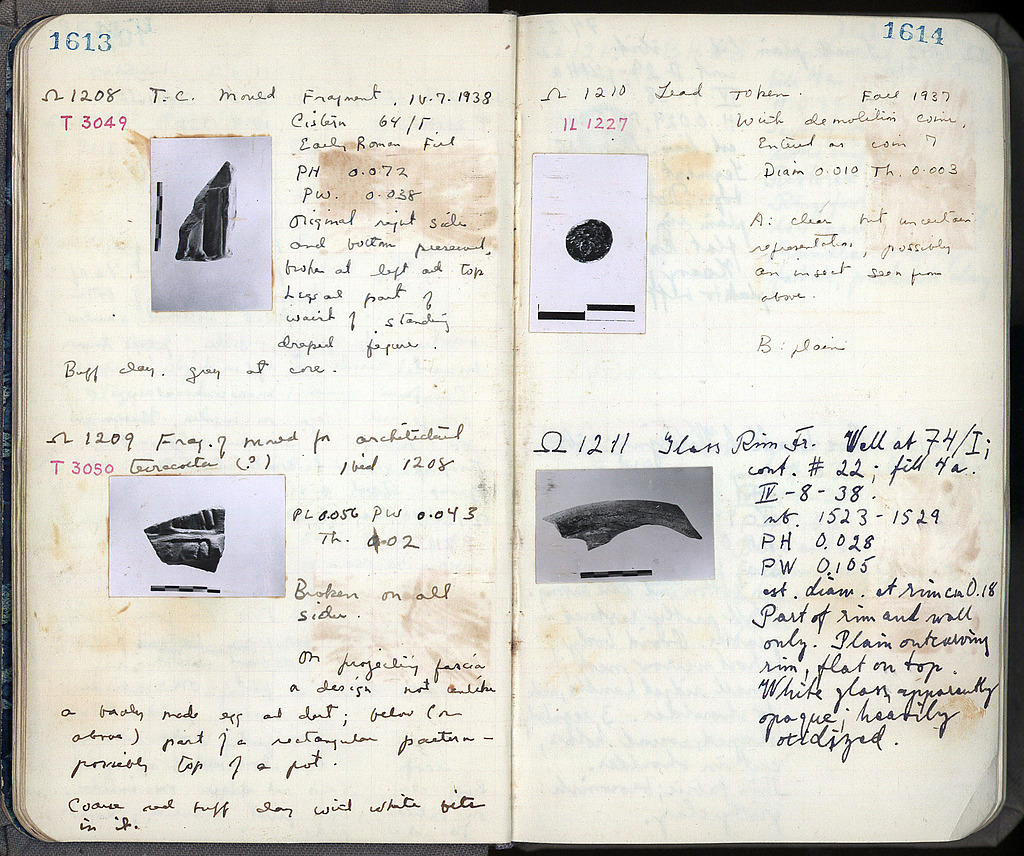 1613
Ω 1208 T.C. Mould Fragment. 14.7.1938
T 3049
Cistern 64/Γ
Early Roman Fill
PH 0.072
PW. 0.038
Original right side
and bottom preserved,
broken at left and top
Legs and part of
waist of standing
draped figure.
Buff clay. gray at core.
Ω 1209 Frag. of mould for architectural
T 3050 terracotta (?) Ibid 1208
PL 0.056 PW 0.043
Th. 0.02
Broken on all
sides.
On projecting fascia
a design not unlike
a badly made egg and dart; below (or
above) part of a rectangular pattern –
possibly top of a pot.
Coarse red buff clay with white bits
in it.
1614
Ω 1210 Lead Token. Fall 1937
IL 1227
With demolition coins.
Entered as coin 7
Diam 0.010 Th. 0.003
A: clear but uncertain
representation, possibly
an insect seen from
above.
B: plain
Ω 1211 Glass Rim Fr. Well at 74/I;
cont. # 22; fill 4a.
IV-8-38.
nb. 1523-1529
PH 0.028
PW 0.105
est. diam. at rim ca 0.18
Part of rim and wall
only. Plain outcurving
rim, flat on top.
White glass, apparently
opaque; heavily
oxidized.